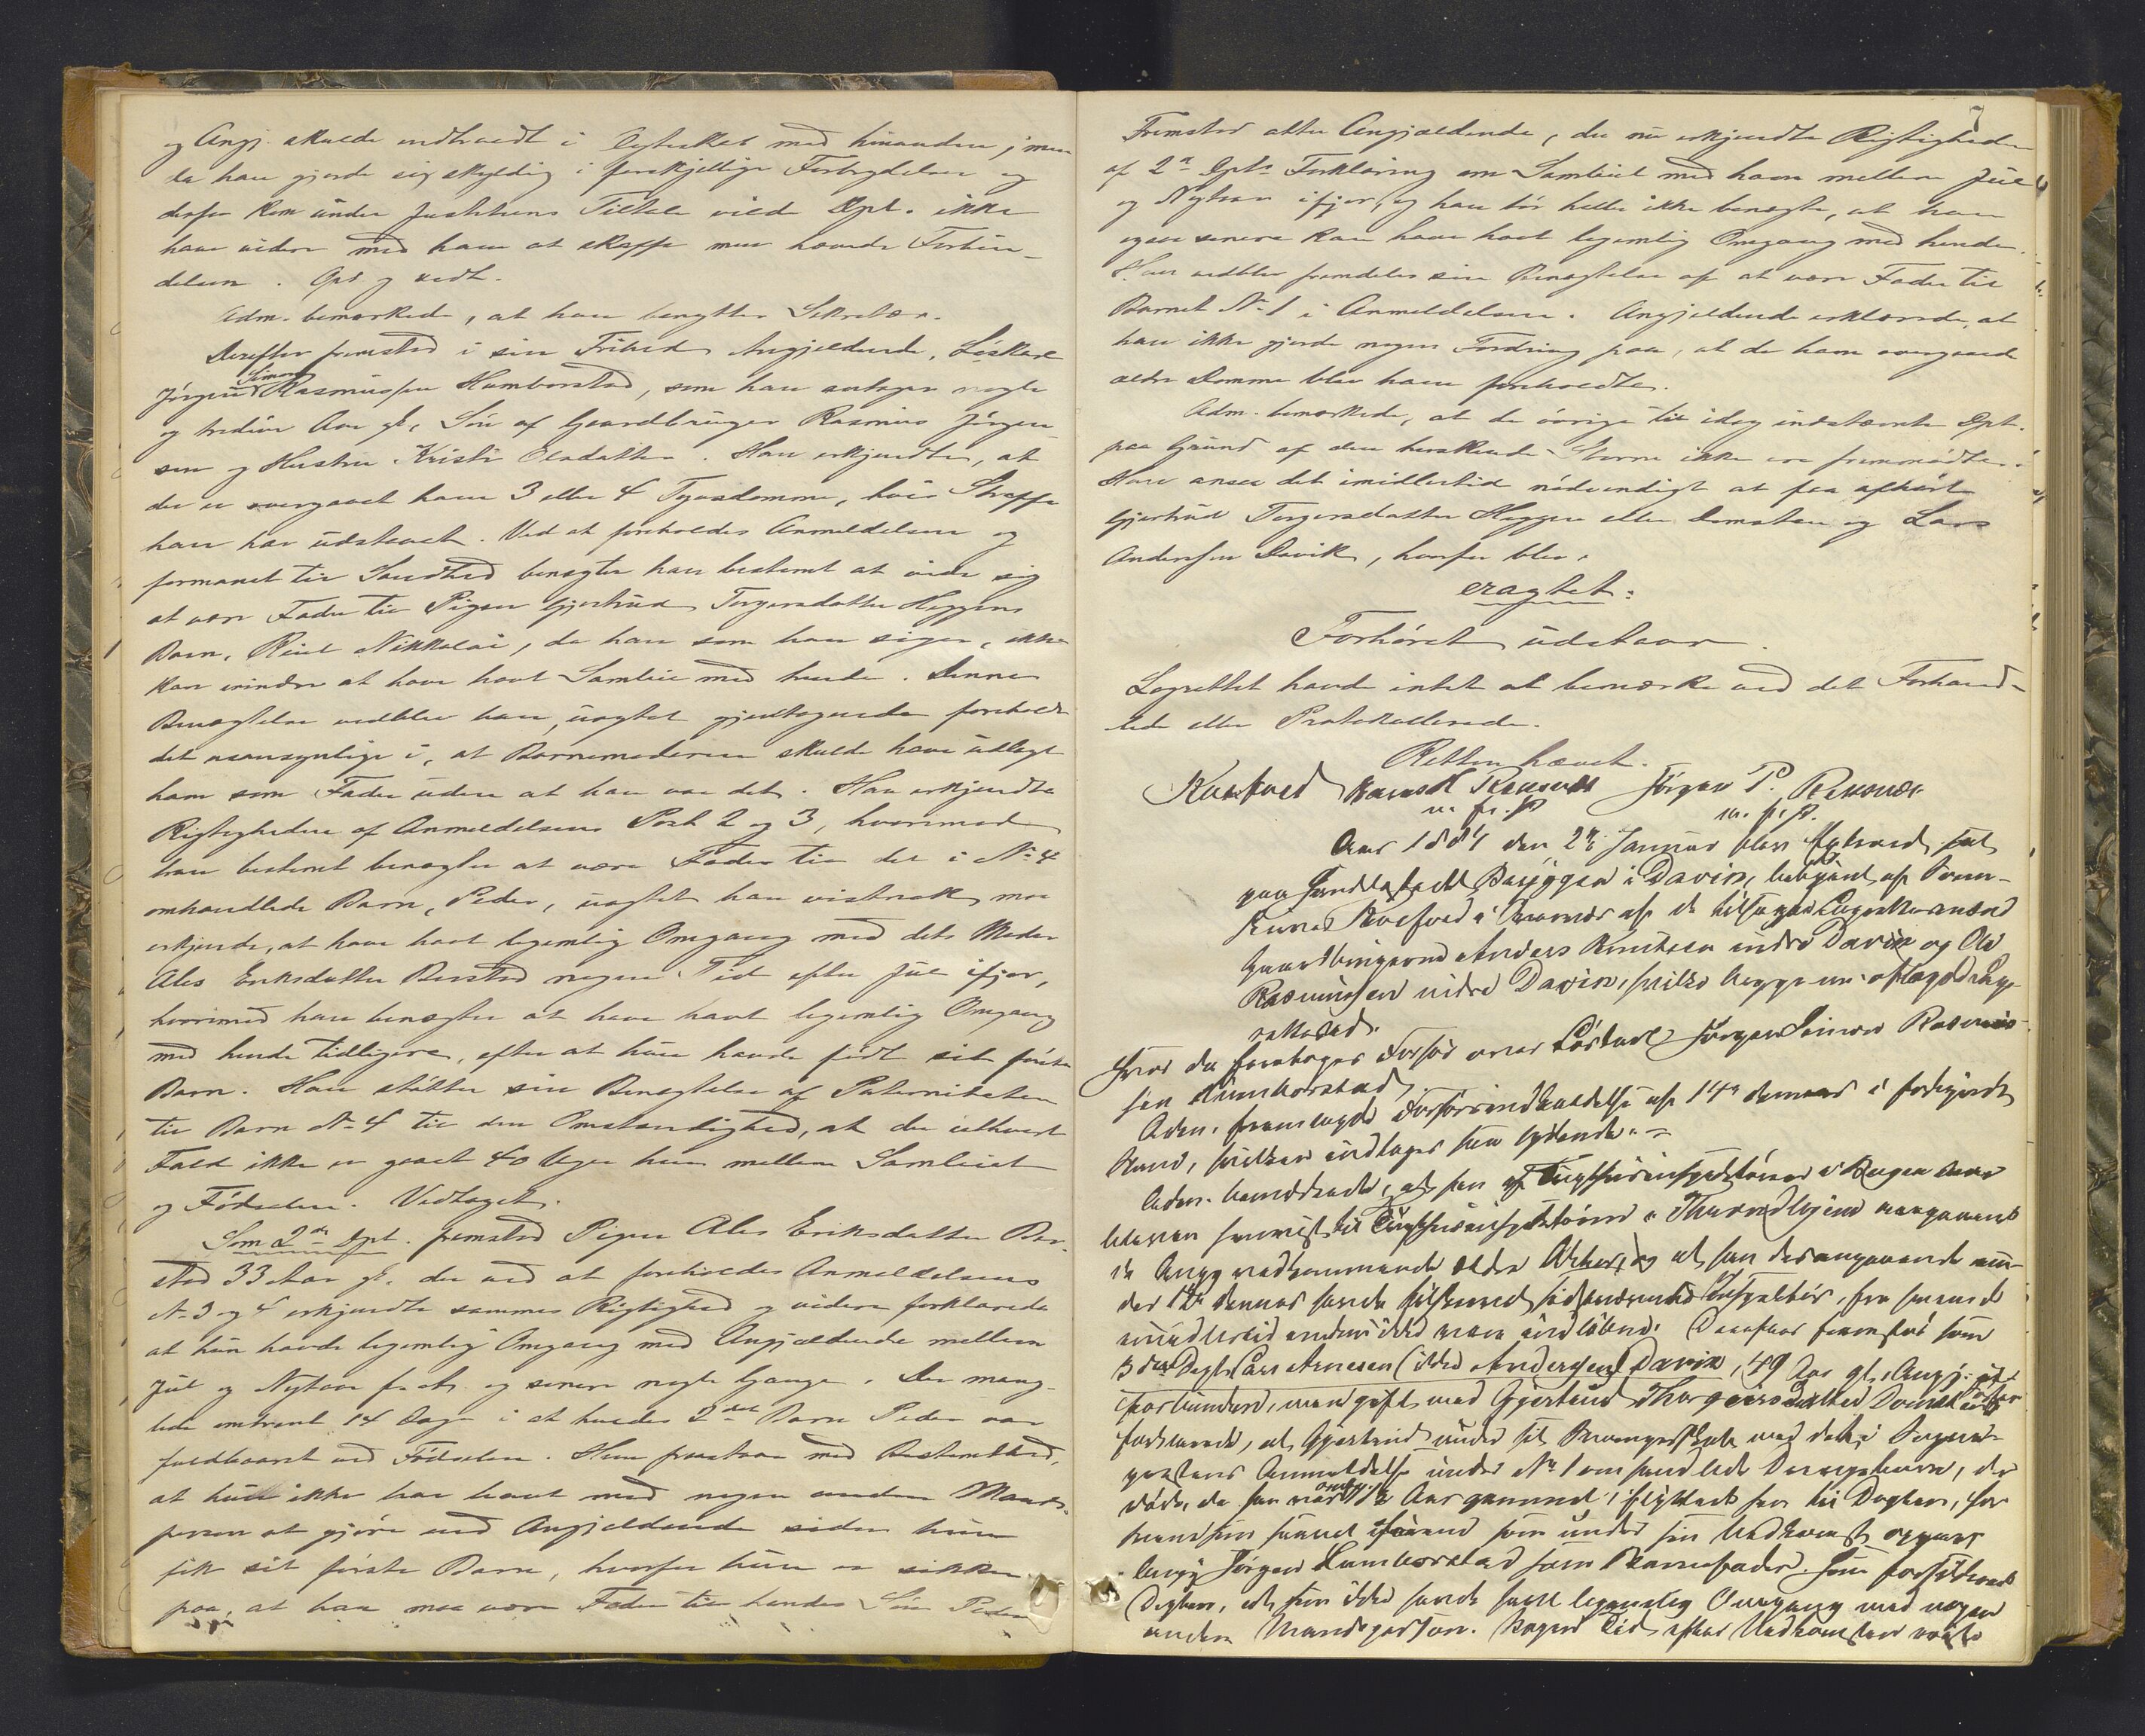 og Angj. skulde indtraadt i Egteskab med hinanden, men
da han gjorde sig skyldig i forskjellige Forbrydelser og
derfor kom under Justitiens Tiltale vilde Dpt. ikke
have videre med ham at skaffe men hævede Forbin-
delsen. Opl. og vedt.
Adm. bemærkede, at han benytter Sekretær.
Derefter fremstod i sin Frihed Angjeldende, Løskarl
Simon
Jørgen Rasmussen Humborstad, som han antager nogle
og tredive Aar gl., Søn af Gaardbruger Rasmus Jørgen-
sen og Hustru Kristi Olsdatter. Han erkjendte, at
der er overgaaet ham 3 eller 4 Tyvsdomme, hvis Straffe
han har udstaaet. Ved at foreholdes Anmeldelsen og
formanet til Sandhed benægter han bestemt at vide sig
at være Fader til Pigen Gjertrud Torgersdatter Heggens
Barn, Knut Nikkolai, da han som han siger, ikke
kan erindre at have havt Samleie med hende. Denne
Benægtelse vedblev han, uagtet gjentagende foreholdt
det usansynlige i, at Barnemoderen skulde have udlagt
ham som Fader uden at han var det. Han erkjendte
Rigtigheden af Anmeldelsens Post 2 og 3, hvorimod
han bestemt benægter at være Fader til det i No 4
omhandlede Barn, Peder, uagtet han vistnok maa
erkjende, at have havt legemlig Omgang med dets Moder
Ales Eriksdatter Berstad nogen Tid efter Jul ifjor,
hvorimod han benægter at have havt legemlig Omgang
med hende tidligere, efter at hun havde født sit første
Barn. Han støtter sin Benægtelse af Paterniteten
til Barn No 4 til den Omstændighed, at der ialtfald
Fald ikke er gaaet 40 Uger hen mellem Samleiet
og Fødselen. Vedtaget.
Som 2det Dpt. fremstod Pigen Ales Eriksdatter Ber-
stad 33 Aar gl. der ved at foreholdes Anmeldelsens
No 3 og 4 erkjendte sammes Rigtighed og videre forklarede
at hun havde legemlig Omgang med Angjældende mellem
Jul og Nytaar f. A. og senere nogle Gange. Der mang-
lede omtrent 14 Dage i at hendes 2det Barn Peder var
fuldbaaret ved Fødselen. Hun paastaar med Bestemthed,
at hun ikke har havt med nogen anden Mands-
person at gjøre end Angjeldende siden hun
fik sit første Barn, hvorfor hun er sikker
paa, at han maa være Fader til hendes Søn Peder
7
Fremstod atter Angjældende, der nu erkjendte Rigtigheden
af 2n Dpts Forklaring om Samleiet med ham mellem Jul
og Nytaar ifjor, og han tør heller ikke benægte, at han
ogsaa senere kan have havt legemlig Omgang med hende.
Han vedblev fremdeles sin Benægtelse af at være Fader til
Barnet No 1 i Anmeldelsen. Angjeldende erklærede, at
han ikke gjorde nogen Fordring paa, at de ham overgaaede
ældre Domme blev ham foreholdte.
Adm. bemærkede, at de øvrige til idag indstævnte Dpt.
paa Grund af den herskende Storm ikke ere fremmødte.
Han ansaa det imidlertid nødvendigt at faa afhørt
Gjertrud Torgersdatter Heggen eller Domsten og Lars
Andersen Davik, hvorfor blev
eragtet:
Forhøret udstaar.
Lagrettet havde intet at bemærke ved det Forhand-
lede eller Protokollerede.
Retten hævet.
Koefoed Rasmus Jørgen P. Rxxxnes
m. f. P. m. f. P.
Aar 1884 den 2n Januar blev Extraret sat
paa Handelsstedet Bakøggen i Davik, betjent af Soren-
Koefoed i af de tilsagte Lagrettesmænd
Gaardbrugerne Anders Knutsen indre Davik og Ole
Rasmussen indre Davik, hvilke begge nu aflagde Lag-
retteseed.
Hvor da foretoges Forhør over Løskarl Jørgen Simon Rasmus-
sen Humborstad.
Adm. fremlagde Forhørsindkaldelse af 14n dennes i forkyndt
Stand, hvilken indtages saa lydende: =
Adm. bemærkede, at han af Tugthusinspektøren i Bergen var
bleven henvist til Tugthusinspektøren i Throndhjem angaaende
de Angj. vedkommende ældre Akter, og at han desangaaende un-
der 12 dennes havde tilskrevet sidstnævnte Inspektør, fra hvem de
imidlertid endnu ikke vare indløbne. Derefter fremstod som
3die Deptn Lars Arnesen (ikke Andersen) Davik, 49 Aar gl., Angj.
ubeslægtet, gift med Gjertrud Thorgersdatter Domsten
forklarede, at Gjertrud under sit Svangerskab med det i Sogne-
præstens Anmeldelse under No 1 omhandlede Barn, der
døde, da han var 1½ Aar gammel, flyttede hen til Depten, for
Angj. Jørgen Humborstad som Barnefader. Hun forsikrede
Depten, at hun ikke havde havt legemlig Omgang med nogen
anden Mandsperson. Nogen Tid efter Nedkomsten